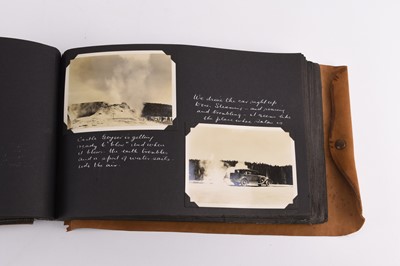 We drove the car right up
here. Steaming - and roaring
and trembling. it seems like
the place where Satan is
Castle Geyser is getting
ready to "blow" and when
it blows the earth trembles
and a spout of water sails
into the air.